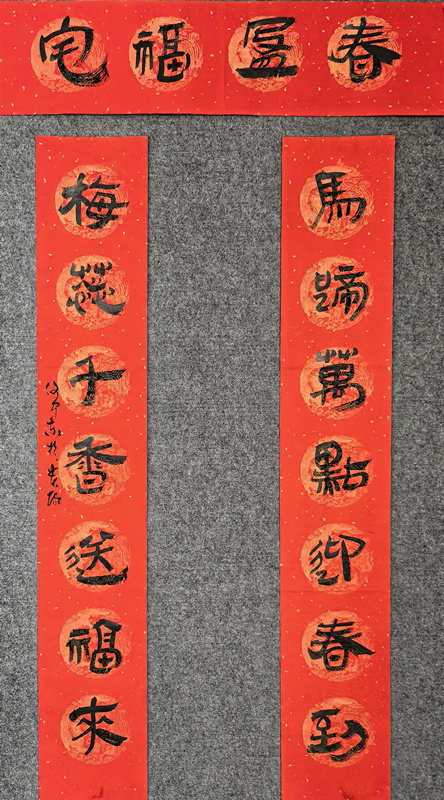 春盈福宅
馬蹄萬點迎春到
梅蕊千香送福來